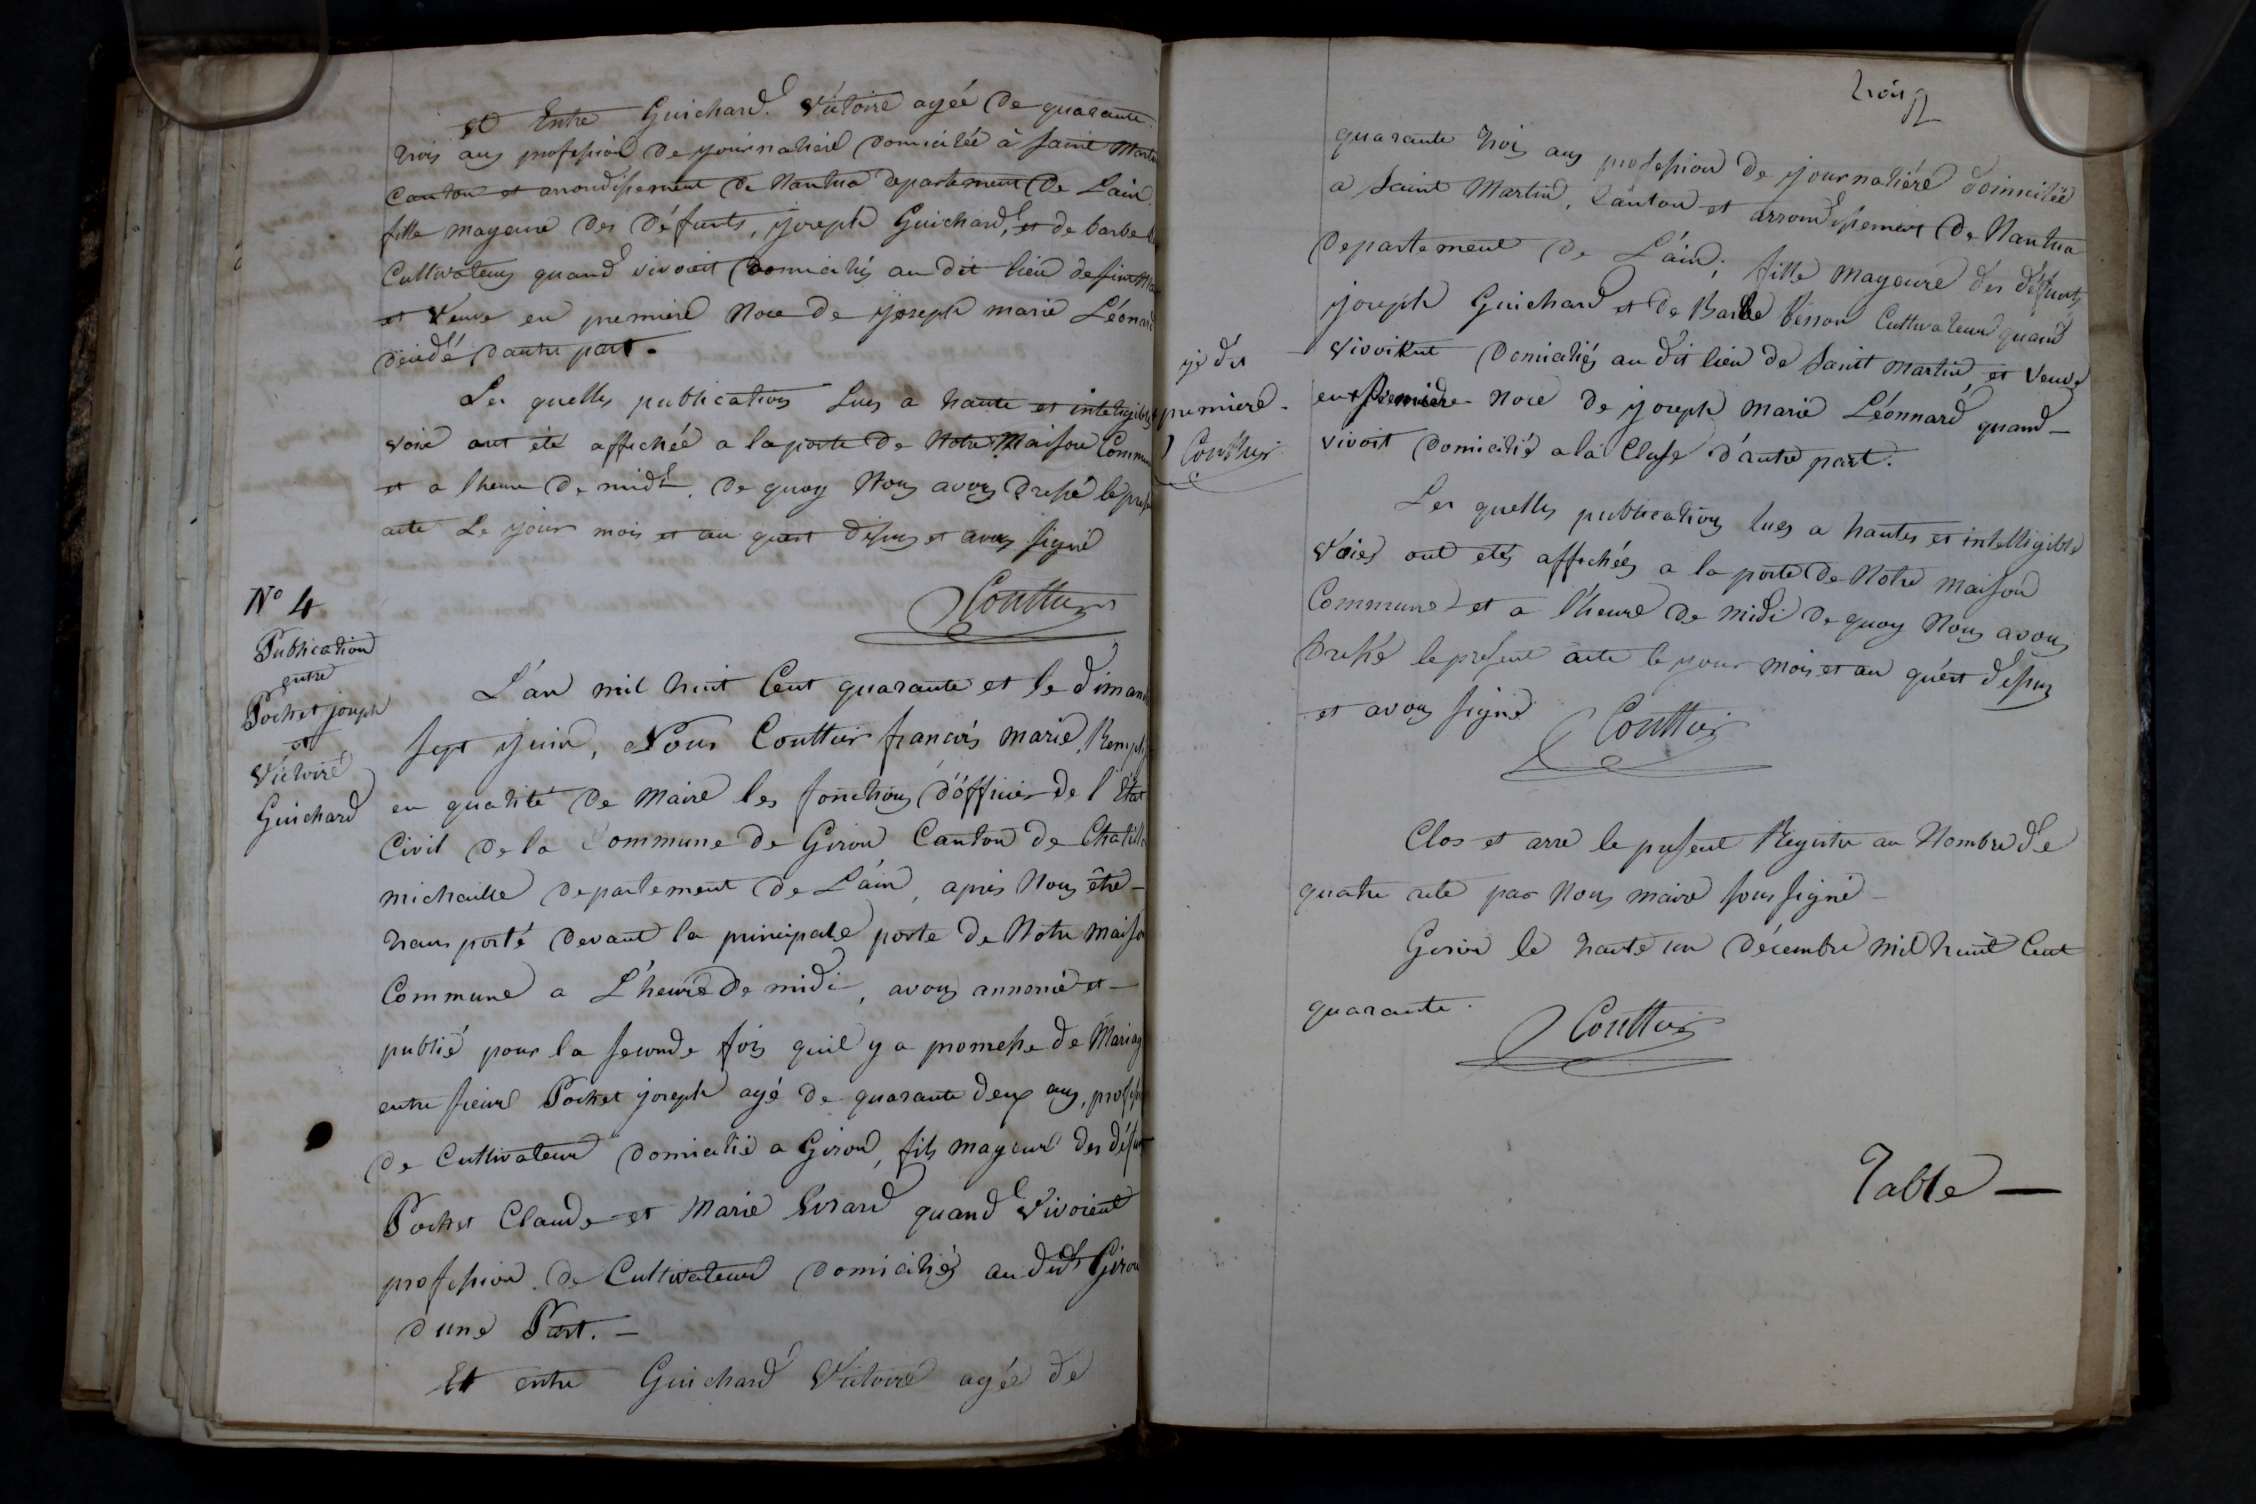 Et Entre Guichard Victoire agée de quarante
trois ans profession de journalière domiciliée à Saint Martin
Canton et arrondissement de Nantua departement de L'ain
fille mayeure des défunts, joseph Guichard, et de barbe
Cultivateurs quand vivoient domiciliés au dit lieu de
et Veuve en premiere Noce de joseph marie Léonard
décédé d'autre part.
Les quelles publications Lues a haute et inteligible
voix ont été affichée a la porte de Notre Maison Commune
et a l'heure de midi, de quoy Nous avons dressé le présent
acte Le jour mois et an quest dessus et avons signé
Couttier
N° 4
Publication
entre
Pochet joseph
et
Victoire
Guichard
L'an mil huit Cent quarante et le dimanche
sept juin, Nous Couttier francois marie, Remplis
en qualité de Maire les fonctions d'officier de l'Etat
Civil de la Commune de Giron Canton de Chatillon
michaille departement de L'ain, après Nous être
transporté devant la principale porte de Notre maison
Commune a L'heure de midi, avons annoncé et
publié pour la seconde fois qu'il y a promesse de Mariage
entre sieur Pochet joseph agé de quarante deux ans, profession
de Cultivateur domicilié a Giron, fils mayeur des défunts
Pochet Claude et Marie Evrard quand Vivoient
profession de Cultivateurs domiciliés au dit Giron
d'une Part.
Et entre Guichard Victoire agée de
trois
quarante trois ans profession de journalière domiciliée
a Saint Martin, Canton et arrondissement de Nantua
Departement de L'ain, fille mayeure des défunts
joseph Guichard et de Barbe besson Cultivateurs quand
vivoient domiciliés au dit lieu de Saint Martin, et Veuve
en premiere Noce de joseph Marie Léonnard quand
vivoit domicilié a la Cluse d'autre part.
je dis
premiere
Couttier
Les quelles publications lues a hautes et intelligible
Voies ont etés affichées a la porte de Notre maison
Commune et a l'heure de midi de quoy Nous avons
dressé le present acte le jour mois et an qu'est dessus
et avons signé
Couttier
Clos et arre le present Registre au Nombre de
quatre acte par Nous maire soussigné
Giron le trante un décembre mil huit Cent
quarante.
Couttier
Table